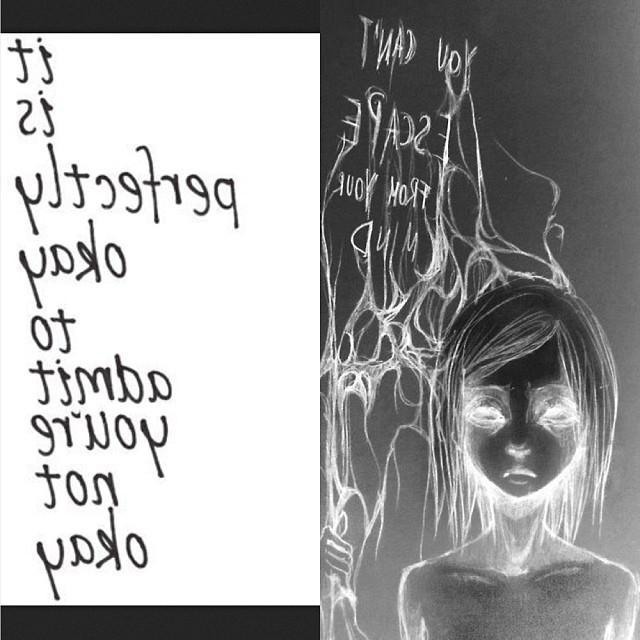 it
is
perfectly
okay
to
admit
you're
not
okay
YOU CAN'T
ESCAPE
FROM YOUR
MIND